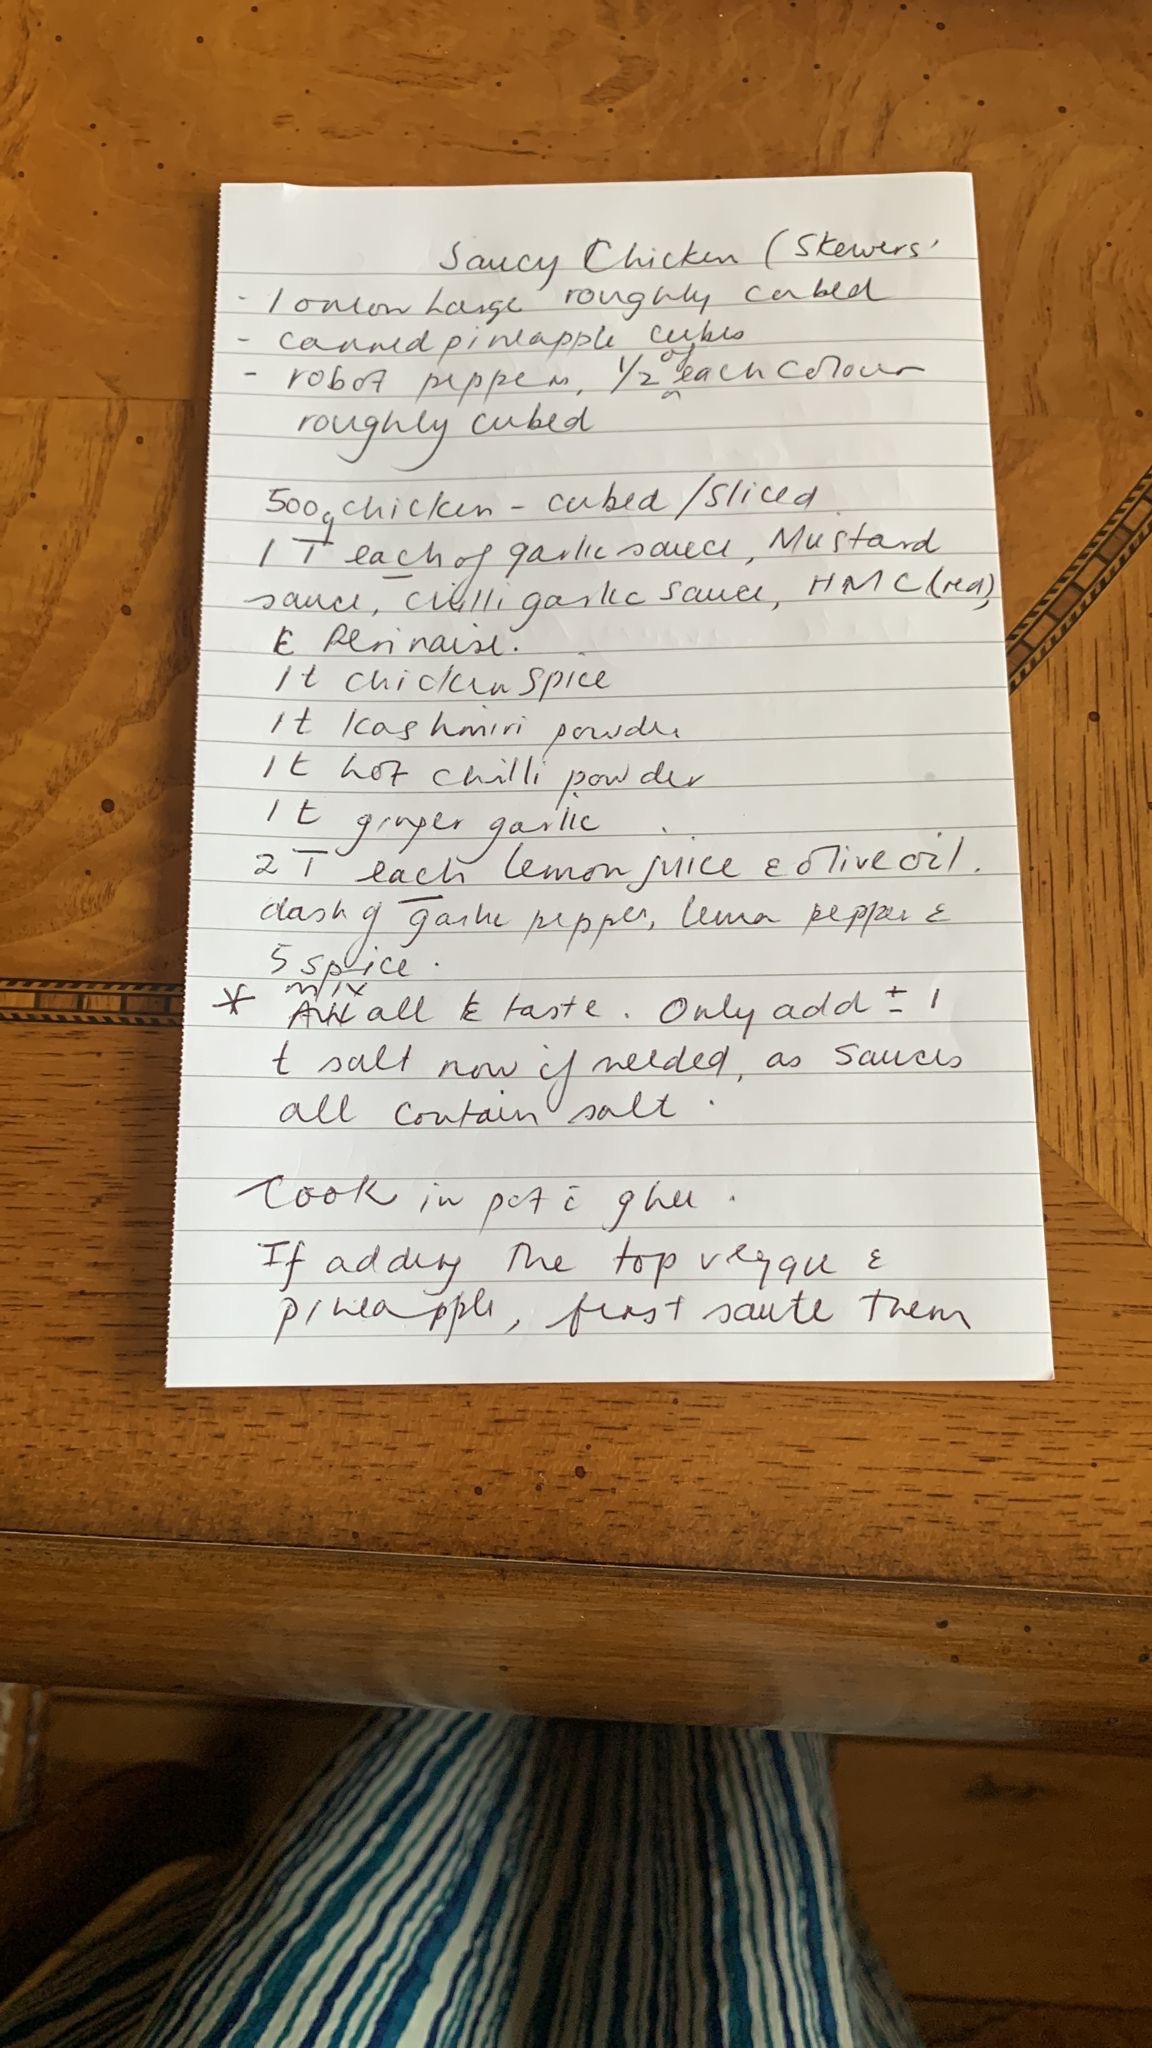 Saucy Chicken (Skewers'
- 1 onion Large roughly cubed
- canned pineapple cubes
- robot peppers, 1/2 of each colour
roughly cubed
500g chicken - cubed / sliced
1 T each of garlic sauce, Mustard
sauce, chilli garlic sauce, HMC (red)
& Perinaise.
1t chicken spice
1t kashmiri powder
1t hot chilli powder
1t ginger garlic
2 T each lemon juice & olive oil.
dash of garlic pepper, lemon pepper &
5 spice.
* mix all & taste. Only add ± 1
t salt now if needed, as sauces
all contain salt.
Cook in pot c̄ ghee.
If adding the top veggie &
pineapple, first saute them